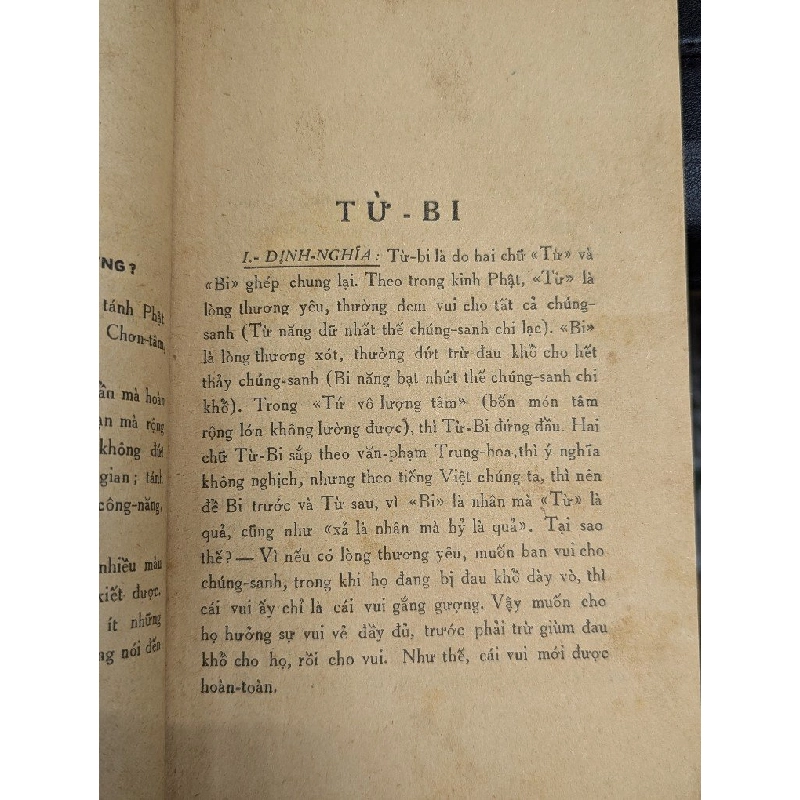 NG?
tánh Phật
Chơn-tâm,
mà hoàn
mà rộng
không dứt
gian; tánh
công-năng,
nhiều màu
kiết được.
ít những
nói đến
TỪ - BI
I.- ĐỊNH-NGHĨA : Từ-bi là do hai chữ «Từ» và
«Bi» ghép chung lại. Theo trong kinh Phật, «Từ» là
lòng thương yêu, thường đem vui cho tất cả chúng-
sanh (Từ năng dữ nhất thế chúng-sanh chi lạc). «Bi»
là lòng thương xót, thường dứt trừ đau khổ cho hết
thảy chúng-sanh (Bi năng bạt nhứt thế chúng-sanh chi
khổ). Trong «Tứ vô lượng tâm» (bốn món tâm
rộng lớn không lường được), thì Từ-Bi đứng đầu. Hai
chữ Từ-Bi sắp theo văn-phạm Trung-hoa,thì ý nghĩa
không nghịch, nhưng theo tiếng Việt chúng ta, thì nên
để Bi trước và Từ sau, vì «Bi» là nhân mà «Từ» là
quả, cũng như «xả là nhân mà hỷ là quả». Tại sao
thế? — Vì nếu có lòng thương yêu, muốn ban vui cho
chúng-sanh, trong khi họ đang bị đau khổ dày vò, thì
cái vui ấy chỉ là cái vui gắng gượng. Vậy muốn cho
họ hưởng sự vui vẻ đầy đủ, trước phải trừ giùm đau
khổ cho họ, rồi cho vui. Như thế, cái vui mới được
hoàn-toàn.